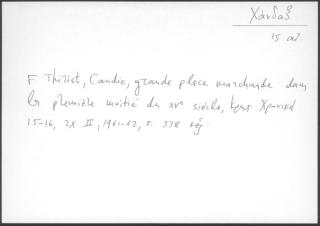 Χάνδαξ
15 αἰ.
F Thiriet, Candie, grande place marchande dans
la première moitié du XVe siècle, Κρητ. Χρονικά
15-16, τχ. II, 1961-62, σ. 338 κἑξ